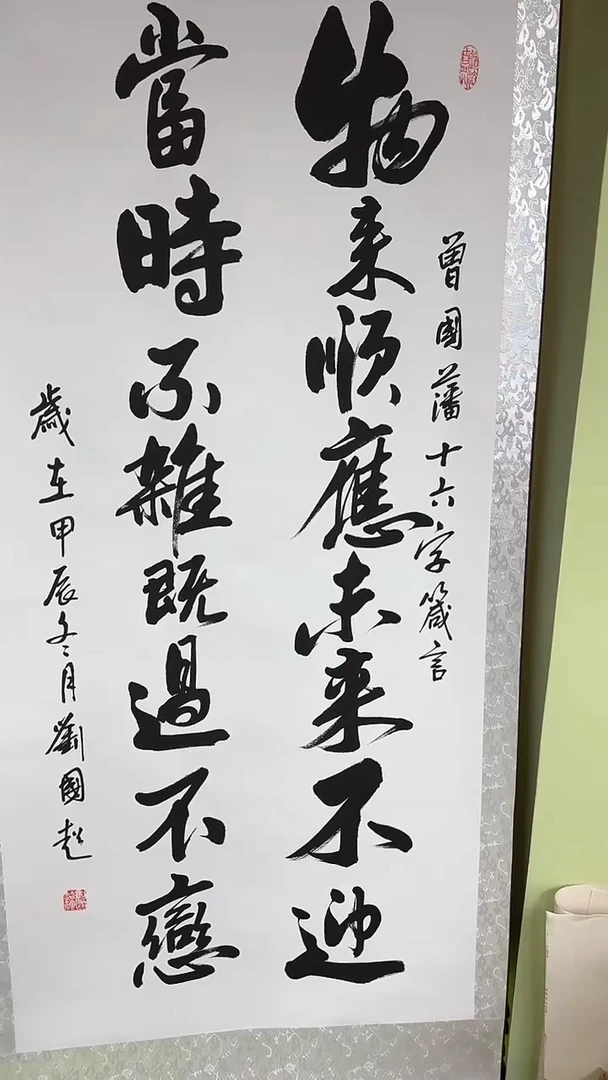 曾國藩十六字箴言
物来順應未来不迎
當時不雜既過不戀
歲在甲辰冬月劉國起